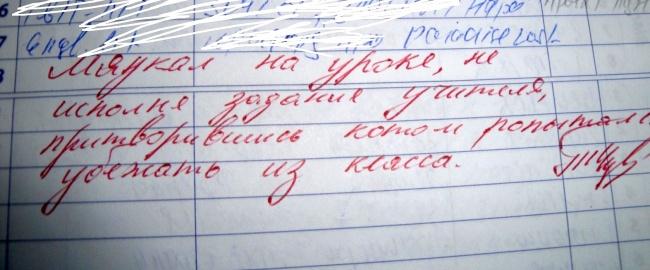 6
7
8
Мяукал на уроке, не
исполня задание учителя,
притворившись котом попытался
убежать из класса.